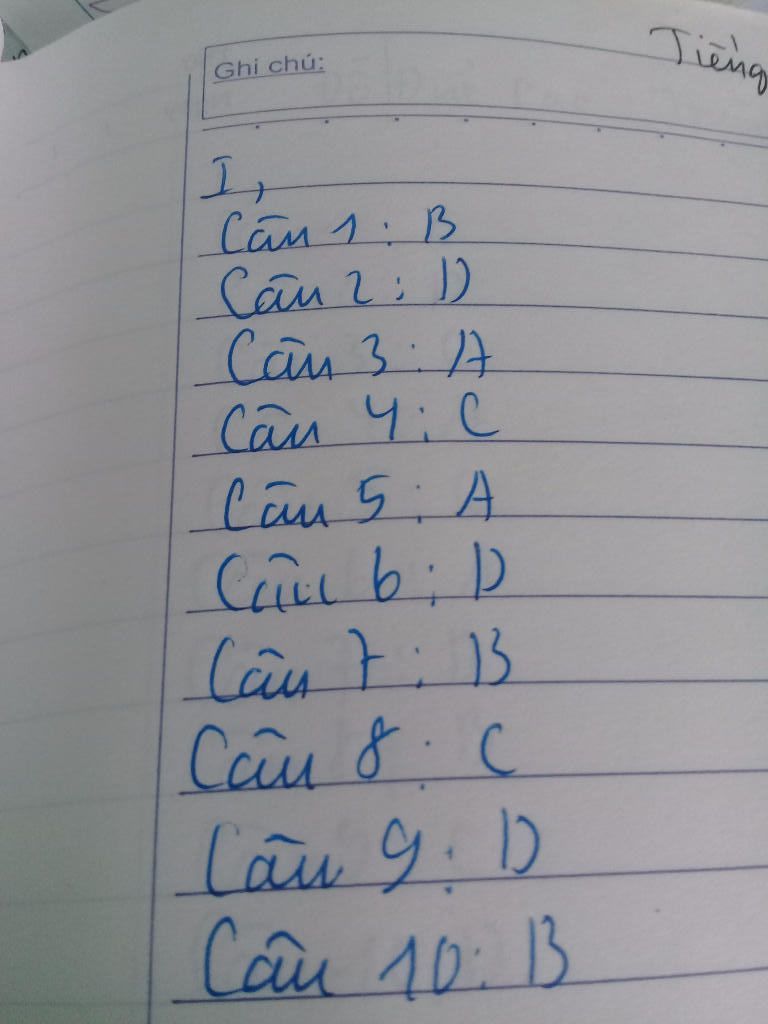 Tiếng
Ghi chú:
I,
Câu 1: B
Câu 2: D
Câu 3: A
Câu 4: C
Câu 5: A
Câu 6: D
Câu 7: B
Câu 8: C
Câu 9: D
Câu 10: B